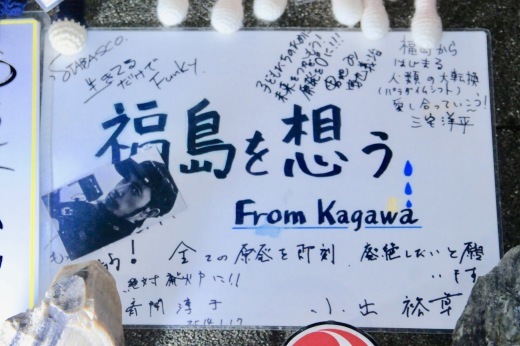 SOUBASCO.
生きてる
だけで
Funky.
子どもたちのために
未来をつなごう!
福島から
はじまる
人類の大転換
(パラダイムシフト)
愛し合っていこう!
三宅洋平
福島を想う
From Kagawa
全ての原発を即刻、廃絶したいと願
います
絶対廃炉に!!
斉間淳子 小出裕章
2014.1.17